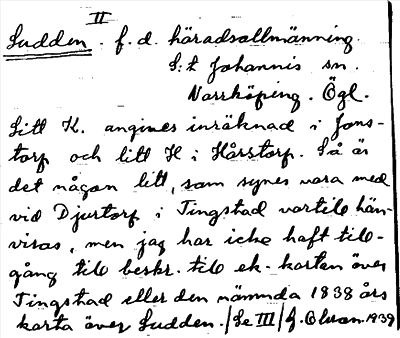 II
Sudden. f. d. häradsallmänning.
S:t Johannis sn.
Norrköping. Ögl.
Litt K. angives inräknad i Jons-
torp och litt H i Hårstorp. Så är
det någon litt, som synes vara med
vid Djurtorp i Tingstad vartill hän-
visas, men jag har icke haft till-
gång till beskr. till ek-kartan över
Tingstad eller den nämnda 1838 års
karta över Sudden./Se III/G. Olsson. 1939